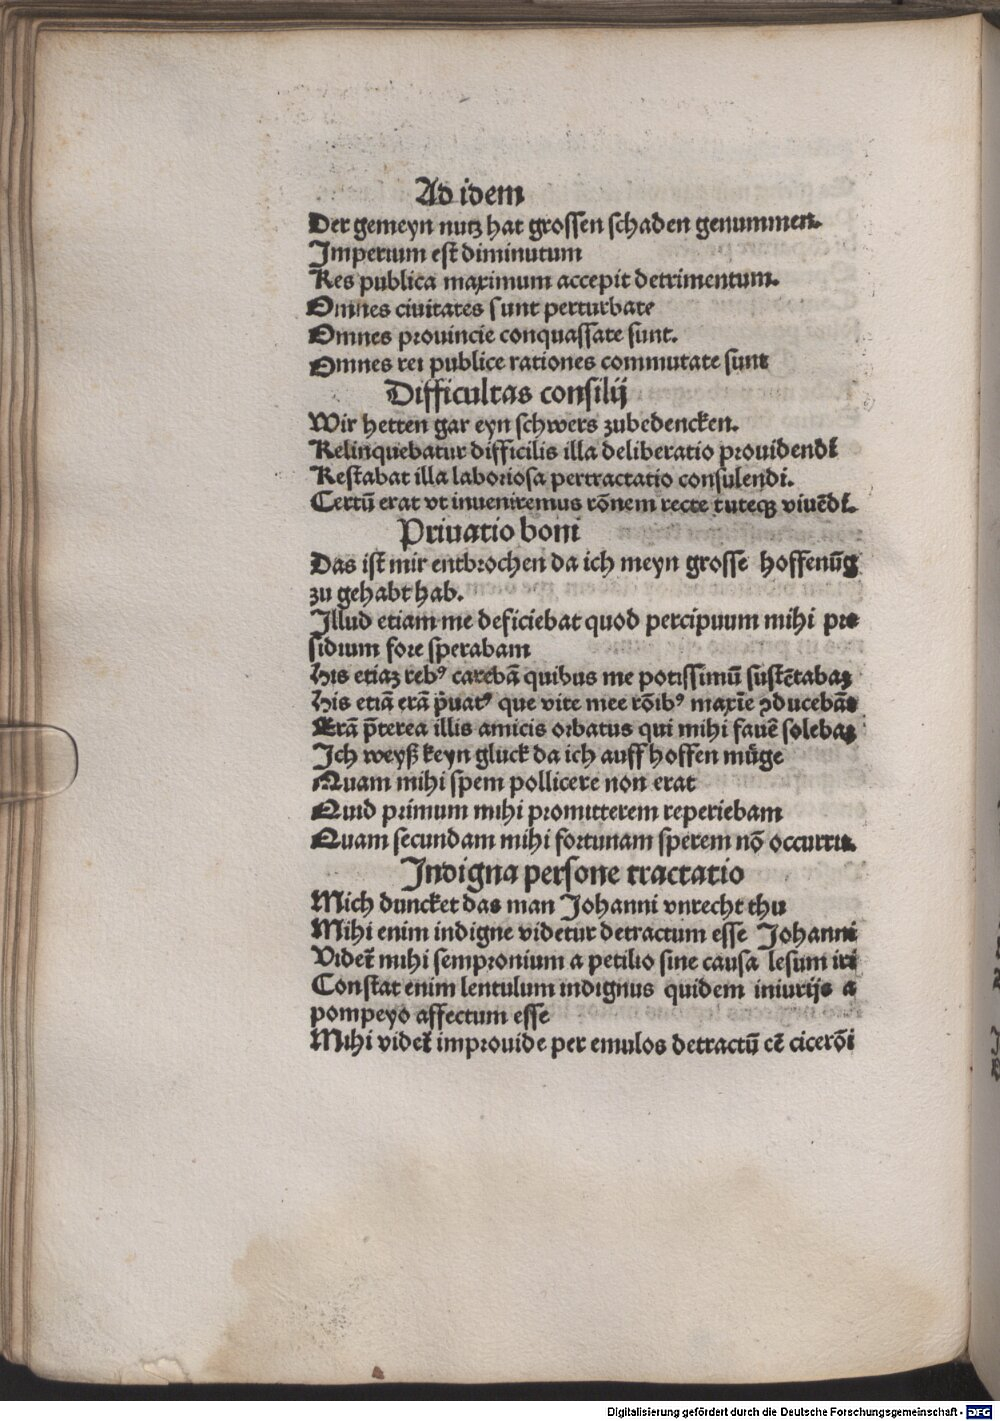 Ad idem
Der gemeyn nutz hat grossen schaden genummen.
Imperium est diminutum
Res publica maximum accepit detrimentum.
Omnes ciuitates sunt perturbate
Omnes prouincie conquassate sunt.
Omnes rei publice rationes commutate sunt
Difficultas consilij
Wir hetten gar eyn schwers zubedencken.
Relinquebatur difficilis illa deliberatio prouidendi
Restabat illa laboriosa pertractatio consulendi.
Certū erat vt inueniremus rōnem recte tuteqꝫ viuēdi.
Priuatio boni
Das ist mir entbrochen da ich meyn grosse hoffenūg
zu gehabt hab.
Illud etiam me deficiebat quod percipuum mihi pre
sidium fore sperabam
His etiaꝫ rebꝰ carebā quibus me potissimū sustētabaꝫ
His etiā erā p̄uatꝰ que vite mee rōibꝰ maxīe ↄducebāt
Erā p̄terea illis amicis orbatus qui mihi fauē solebaꝫ
Ich weyß keyn gluck da ich auff hoffen müge
Quam mihi spem pollicere non erat
Quid primum mihi promitterem reperiebam
Quam secundam mihi fortunam sperem nō occurrit.
Indigna persone tractatio
Mich duncket das man Johanni vnrecht thu
Mihi enim indigne videtur detractum esse Johanni
Videt̄ mihi sempronium a petilio sine causa lesum iri
Constat enim lentulum indignus quidem iniurijs a
pompeyo affectum esse
Mihi videt̄ improuide per emulos detractū eē cicerōi
Digitalisierung gefördert durch die Deutsche Forschungsgemeinschaft - DFG